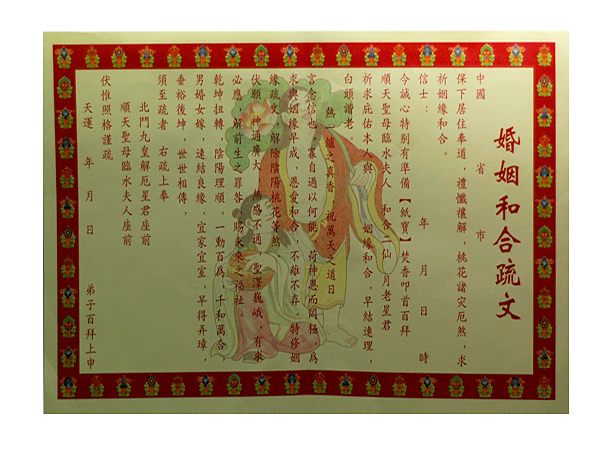 婚姻和合疏文
中國 省 市
保下居住奉道，禮懺禳解，桃花諸災厄煞，求
祈姻緣和合。
信士： 年 月 日 時
今誠心特別有準備【紙寶】焚香叩首百拜
順天聖母臨水夫人 和合二仙 月老星君
祈求庇佑本人與 姻緣和合，早結連理，
白頭諧老。
熱一爐之真香 祝萬天之道日
言念信也，寡自過以何能，荷神恩而罔極，為
求姻緣早成，恩愛和合，不離不弃，特修姻
緣疏文，解除陰陽桃花等煞
伏願 神通廣大，無感不通，聖澤巍峨，有求
必應，解前生之罪咎，賜未來之福祉
乾坤扭轉，陰陽理順，一動百為，千和萬合
男婚女嫁，速結良緣，宜家宜室，早得弄璋，
垂裕後坤，世世相傳，
須至疏者 右疏上奉
北斗九皇解厄星君座前
順天聖母臨水夫人座前
伏惟照格謹疏
天運 年 月 日 弟子百拜上申